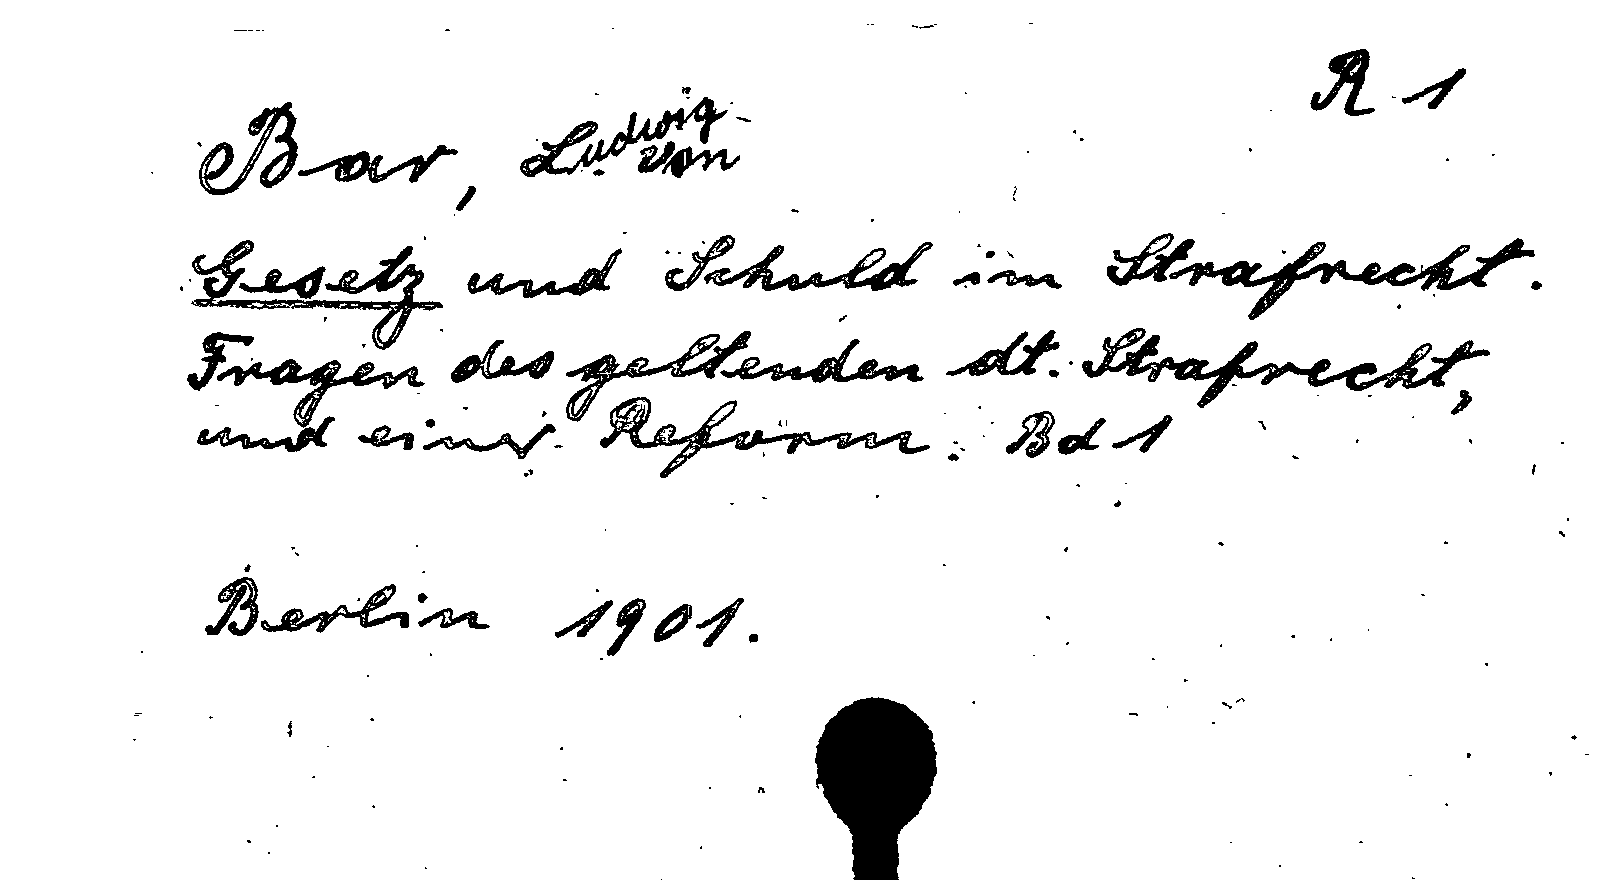 R 1
Bar, Ludwig von
Gesetz und Schuld im Strafrecht.
Fragen des geltenden dt. Strafrecht,
und einer Reform. Bd 1
Berlin 1901.